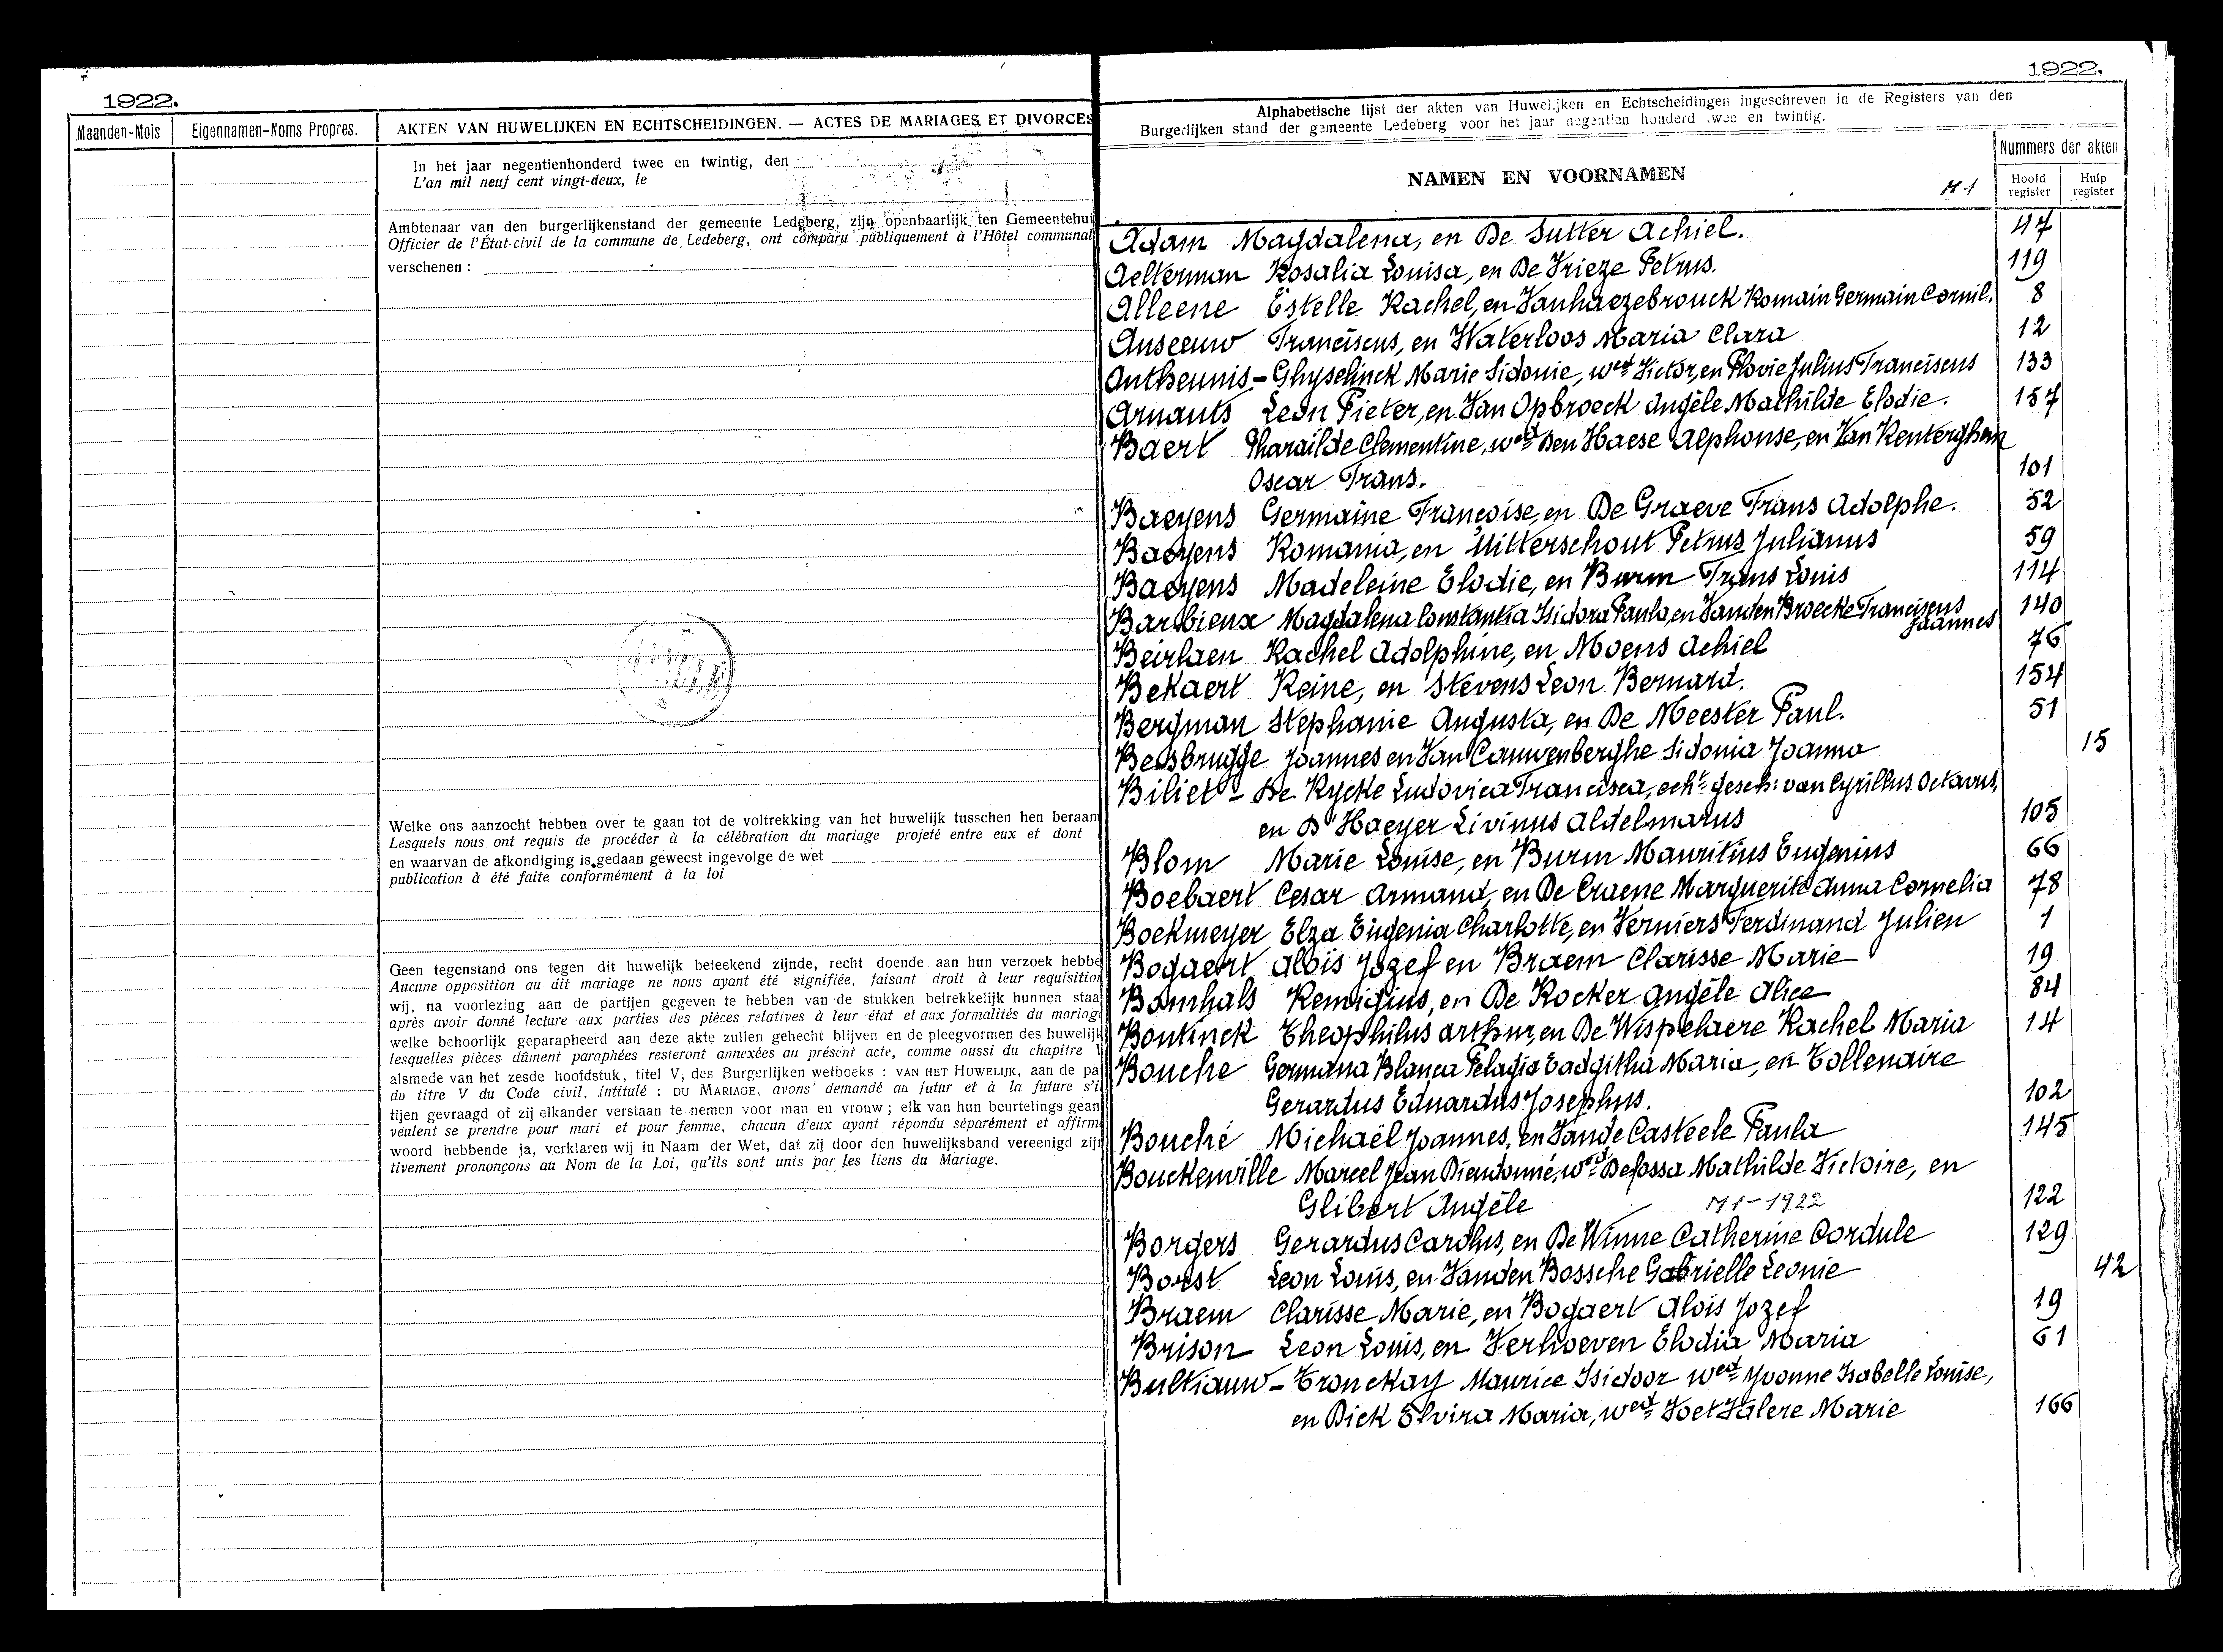 1922.
Maanden-Mois
Eigennamen-Noms Propres.
AKTEN VAN HUWELIJKEN EN ECHTSCHEIDINGEN. — ACTES DE MARIAGES ET DIVORCES
In het jaar negentienhonderd twee en twintig, den
L'an mil neuf cent vingt-deux, le
Ambtenaar van den burgerlijkenstand der gemeente Ledeberg, zijn openbaarlijk ten Gemeentehui
Officier de l'État-civil de la commune de Ledeberg, ont comparu publiquement à l'Hôtel communal
verschenen :
Welke ons aanzocht hebben over te gaan tot de voltrekking van het huwelijk tusschen hen beraam
Lesquels nous ont requis de procéder à la célébration du mariage projeté entre eux et dont
en waarvan de afkondiging is gedaan geweest ingevolge de wet
publication à été faite conformément à la loi
Geen tegenstand ons tegen dit huwelijk beteekend zijnde, recht doende aan hun verzoek hebbe
Aucune opposition au dit mariage ne nous ayant été signifiée, faisant droit à leur requisition
wij, na voorlezing aan de partijen gegeven te hebben van de stukken betrekkelijk hunnen staa
après avoir donné lecture aux parties des pièces relatives à leur état et aux formalités du mariage
welke behoorlijk geparapheerd aan deze akte zullen gehecht blijven en de pleegvormen des huwelijk
lesquelles pièces dûment paraphées resteront annexées au présent acte, comme aussi du chapitre V
alsmede van het zesde hoofdstuk, titel V, des Burgerlijken wetboeks : VAN HET HUWELIJK, aan de pa
du titre V du Code civil, intitulé : DU MARIAGE, avons demandé au futur et à la future s'i
tijen gevraagd of zij elkander verstaan te nemen voor man en vrouw ; elk van hun beurtelings gean
veulent se prendre pour mari et pour femme, chacun d'eux ayant répondu séparément et affirm
woord hebbende ja, verklaren wij in Naam der Wet, dat zij door den huwelijksband vereenigd zijn
tivement prononçons au Nom de la Loi, qu'ils sont unis par les liens du Mariage.
1922.
Alphabetische lijst der akten van Huwelijken en Echtscheidingen ingeschreven in de Registers van den
Burgerlijken stand der gemeente Ledeberg voor het jaar negentien honderd twee en twintig.
NAMEN EN VOORNAMEN
M-1
Nummers der akten
Hoofd register
Hulp register
Adam Magdalena, en De Sutter Achiel. 47
Aelterman Rosalia Louisa, en De Vrieze Petrus. 119
Alleene Estelle Rachel, en Vanhaezebrouck Romain Germain Cornil. 8
Anseeuw Franciscus, en Waterloos Maria Clara 12
Antheunis - Ghyselinck Marie Sidonie, wed. Victor, en Plovie Julius Franciscus 133
Arnauts Leon Pieter, en Van Opbroeck Angèle Mathilde Elodie. 157
Baert Pharaïlde Clementine, wed. Den Haese Alphonse, en Van Renterghem
Oscar Frans. 101
Baeyens Germaine Françoise, en De Graeve Frans Adolphe. 52
Baeyens Romania, en Uitterschout Petrus Julianus 59
Baeyens Madeleine Elodie, en Burm Frans Louis 114
Barbieux Magdalena Constantia Isidora Paula, en Vanden Broecke Franciscus 140
Joannes
Beirlaen Rachel Adolphine, en Moens Achiel 76
Bekaert Reine, en Stevens Leon Bernard. 154
Bergman Stephanie Augusta, en De Meester Paul. 51
Beusbrugge Joannes en Van Cauwenberghe Sidonia Joanna 15
Biliet - De Rycke Ludovica Francisca, echt. gesch: van Cyrillus Octavus,
en D'Haeyer Livinus Aldelmarus 105
Blom Marie Louise, en Burm Mauritius Eugenius 66
Boebaert Cesar Armand, en De Craene Marguerite Anna Cornelia 78
Boekmeyer Elza Eugenia Charlotte, en Verniers Ferdinand Julien 1
Bogaert Aloïs Jozef en Braem Clarisse Marie 19
Bomhals Remigius, en De Rocker Angèle Alice 84
Bontinck Theophilus Arthur, en De Wispelaere Rachel Maria 14
Bouche Germana Blanca Pelagia Eadgitha Maria, en Tollenaire
Gerardus Eduardus Josephus. 102
Bouché Michaël Joannes, en Vande Casteele Paula 145
Bouckenville Marcel Jean Dieudonné, wed. Defossa Mathilde Victoire, en
Glibert Angèle M1-1922 122
Borgers Gerardus Carolus, en De Winne Catherine Cordule 129
Borst Leon Louis, en Vanden Bossche Gabrielle Leonie 42
Braem Clarisse Marie, en Bogaert Aloïs Jozef 19
Brison Leon Louis, en Verhoeven Elodia Maria 61
Bultiauw - Tronckay Maurice Isidoor wed. Yvonne Isabelle Louise,
en Dick Elvira Maria, wed. Voet Valere Marie 166